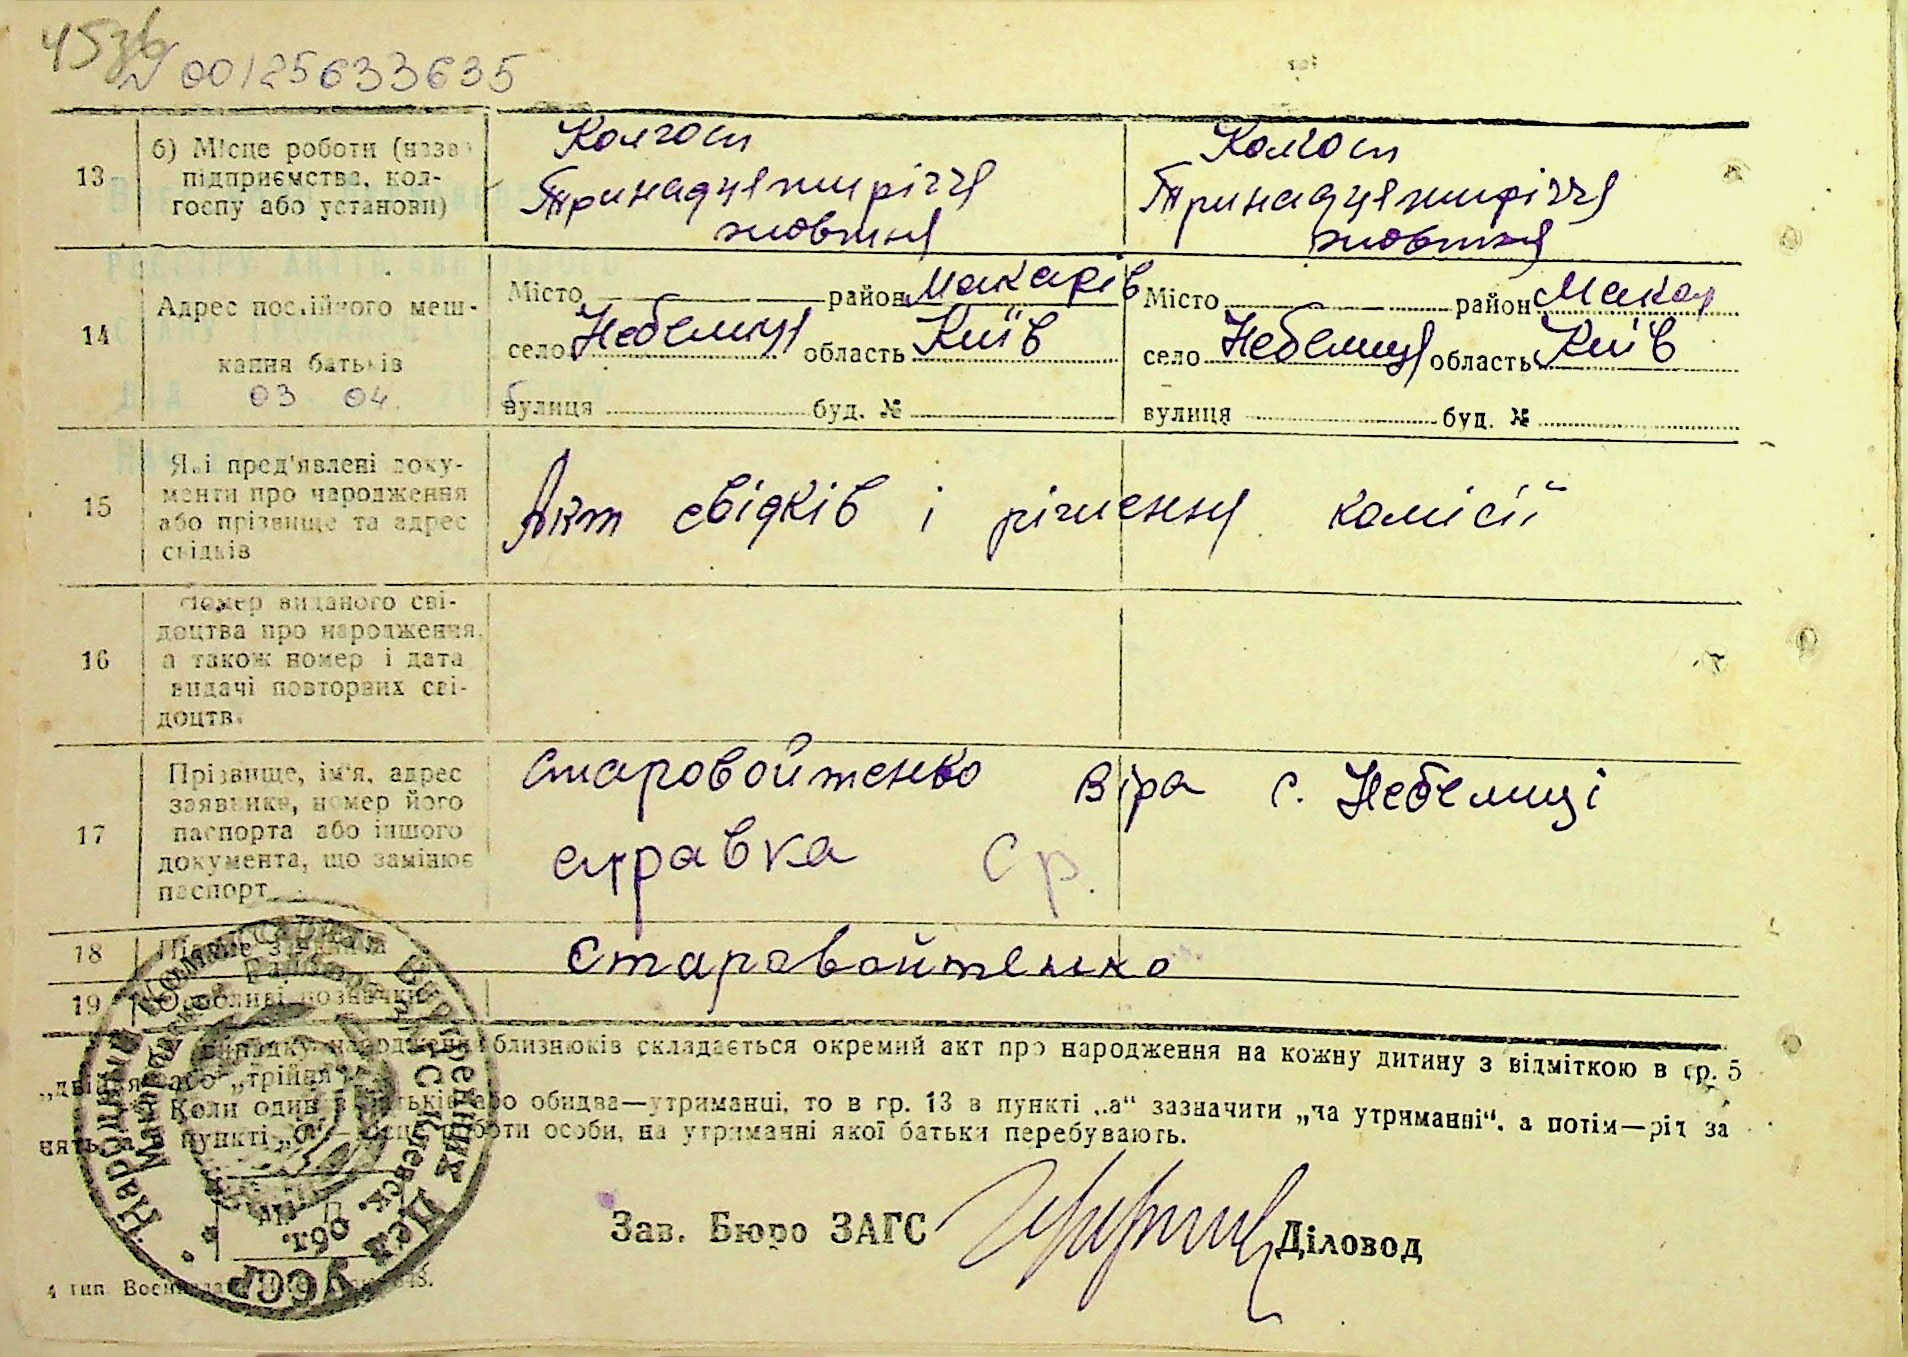 № 00125633635
13
б) Місце роботи (назва
підприємства, кол-
госпу або установи)
Колгосп
Тринадцятиріччя
жовтня
Колгосп
Тринадцятиріччя
жовтня
14
Адрес постійного меш-
кання батьків
03 04.
Місто район Макарів
село Небелиця область Київ
вулиця буд. №
Місто район Макар
село Небелиця область Київ
вулиця буд. №
15
Які пред'явлені доку-
менти про народження
або прізвище та адрес
свідків
Акт свідків і рішення комісії
16
Номер виданого сві-
доцтва про народження,
а також номер і дата
видачі повторних сві-
доцтв.
17
Прізвище, ім'я, адрес
заявника, номер його
паспорта або іншого
документа, що замінює
паспорт
Старовойтенко Віра с. Небелиці
справка Ср.
18
Підпис заявника
Старовойтенко
19
Особливі позначки
випадку народження близнюків складається окремий акт про народження на кожну дитину з відміткою в гр. 5
„двійня“ або „трійня“.
Коли один з батьків або обидва—утриманці, то в гр. 13 в пункті „а“ зазначити „на утриманні“, а потім—рід за
пункті „б“ роботи особи, на утриманні якої батьки перебувають.
Зав. Бюро ЗАГС
Діловод
Народний Комиссариат Внутренних Дел УССР